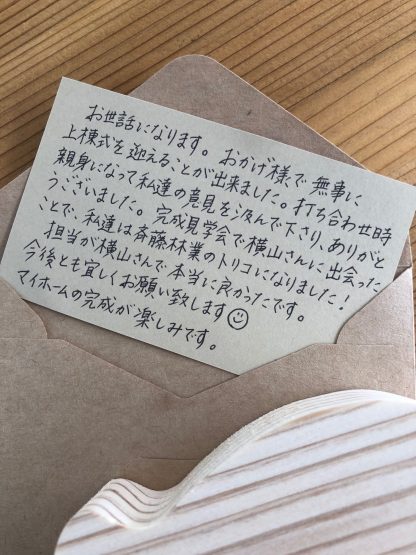 お世話になります。おかげ様で無事に
上棟式を迎えることが出来ました。打ち合わせ時
親身になって私達の意見を汲んで下さり、ありがと
うございました。完成見学会で横山さんに出会った
ことで、私達は斉藤林業のトリコになりました！
担当が横山さんで本当に良かったです。
今後とも宜しくお願い致します☺
マイホームの完成が楽しみです。